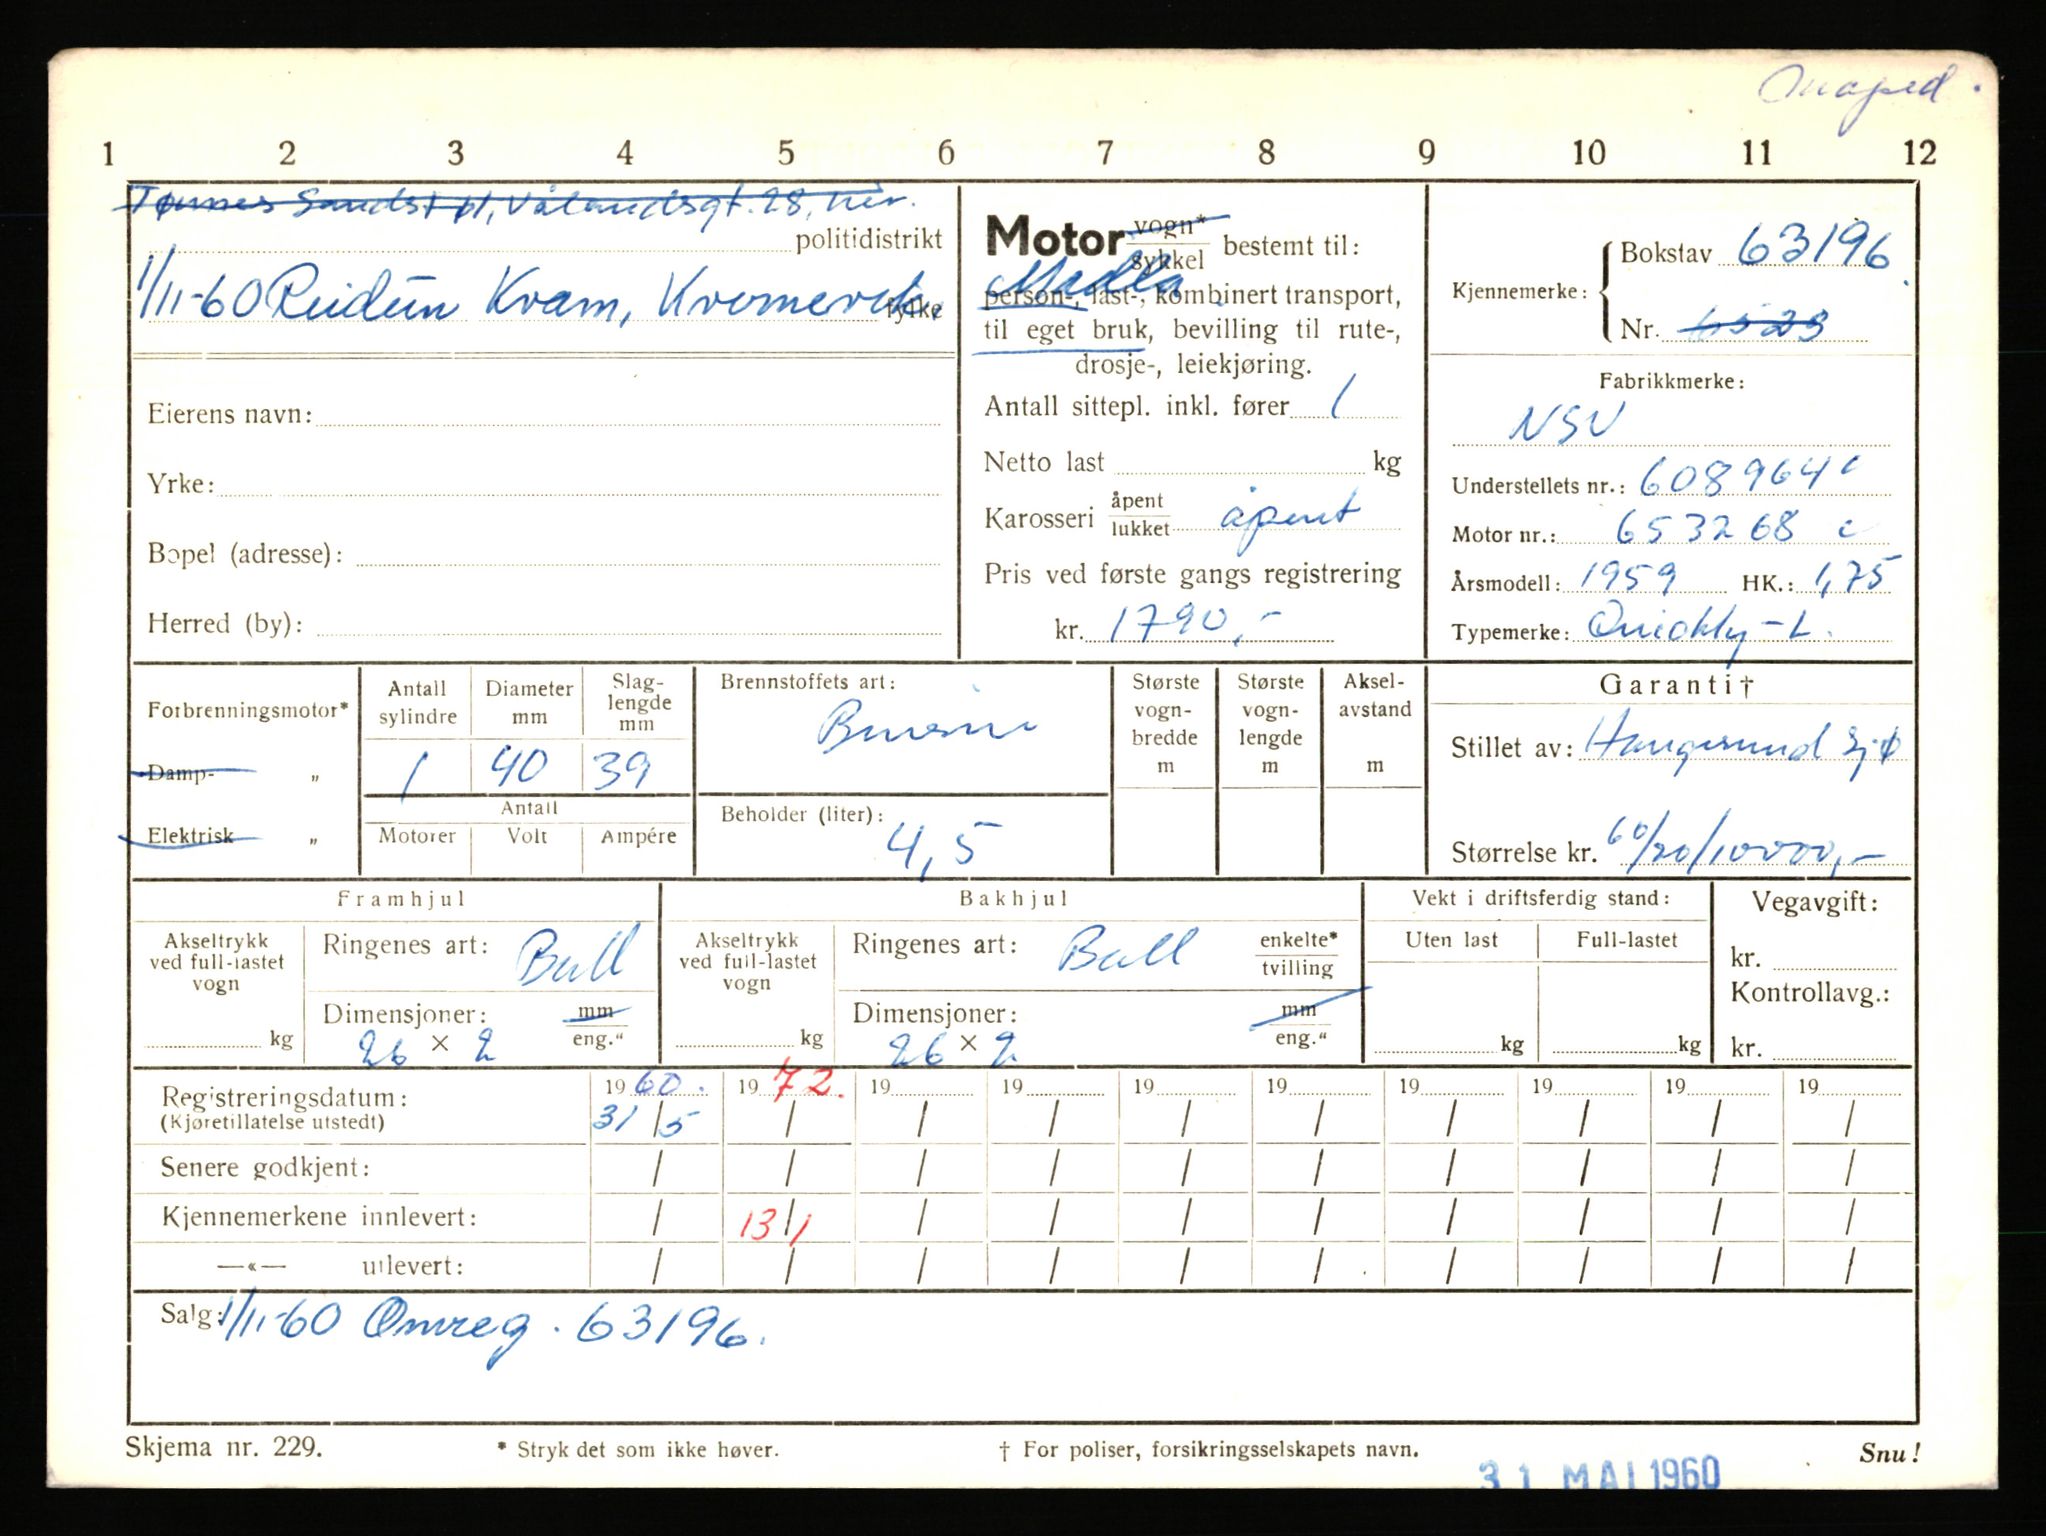 Moped.
1 2 3 4 5 6 7 8 9 10 11 12
Tønnes Sandstøl, Vålandsgt. 28, her.
politidistrikt
1/11-60 Reidun Kvam,
fylke
Eierens navn:
Yrke:
Bopel (adresse):
Herred (by):
Motor vogn* sykkel bestemt til:
Madla
person-, last-, kombinert transport,
til eget bruk, bevilling til rute-,
drosje-, leiekjøring.
Antall sittepl. inkl. fører 1
Netto last kg
Karosseri åpent lukket åpent
Pris ved første gangs registrering
kr. 1790,-
Kjennemerke: Bokstav 63196
Nr. 6523
Fabrikkmerke:
NSU
Understellets nr.: 608964 c
Motor nr.: 653268 c
Årsmodell: 1959 HK.: 1,75
Typemerke: Quickly-L.
Forbrenningsmotor*
Damp- „
Elektrisk „
Antall sylindre Diameter mm Slag-lengde mm
1 40 39
Antall
Motorer Volt Ampére
Brennstoffets art:
Bensin
Beholder (liter):
4,5
Største vogn-bredde m
Største vogn-lengde m
Aksel-avstand m
Garanti†
Stillet av: Haugesund Sjø
Størrelse kr. 60/20/10000,-
Framhjul
Akseltrykk ved full-lastet vogn
kg
Ringenes art: Ball
Dimensjoner: mm eng."
26 × 2
Bakhjul
Akseltrykk ved full-lastet vogn
kg
Ringenes art: Ball enkelte* tvilling
Dimensjoner: mm eng."
26 × 2
Vekt i driftsferdig stand:
Uten last Full-lastet
kg kg
Vegavgift:
kr.
Kontrollavg.:
kr.
Registreringsdatum: 1960. 1972. 19 19 19 19 19 19 19 19
(Kjøretillatelse utstedt) 31/5 / / / / / / / / /
Senere godkjent: / / / / / / / / / /
Kjennemerkene innlevert: / 13/1 / / / / / / / /
—«— utlevert: / / / / / / / / / /
Salg: 1/11-60 Omreg. 63196.
Skjema nr. 229. * Stryk det som ikke høver. † For poliser, forsikringsselskapets navn. Snu!
31 MAI 1960